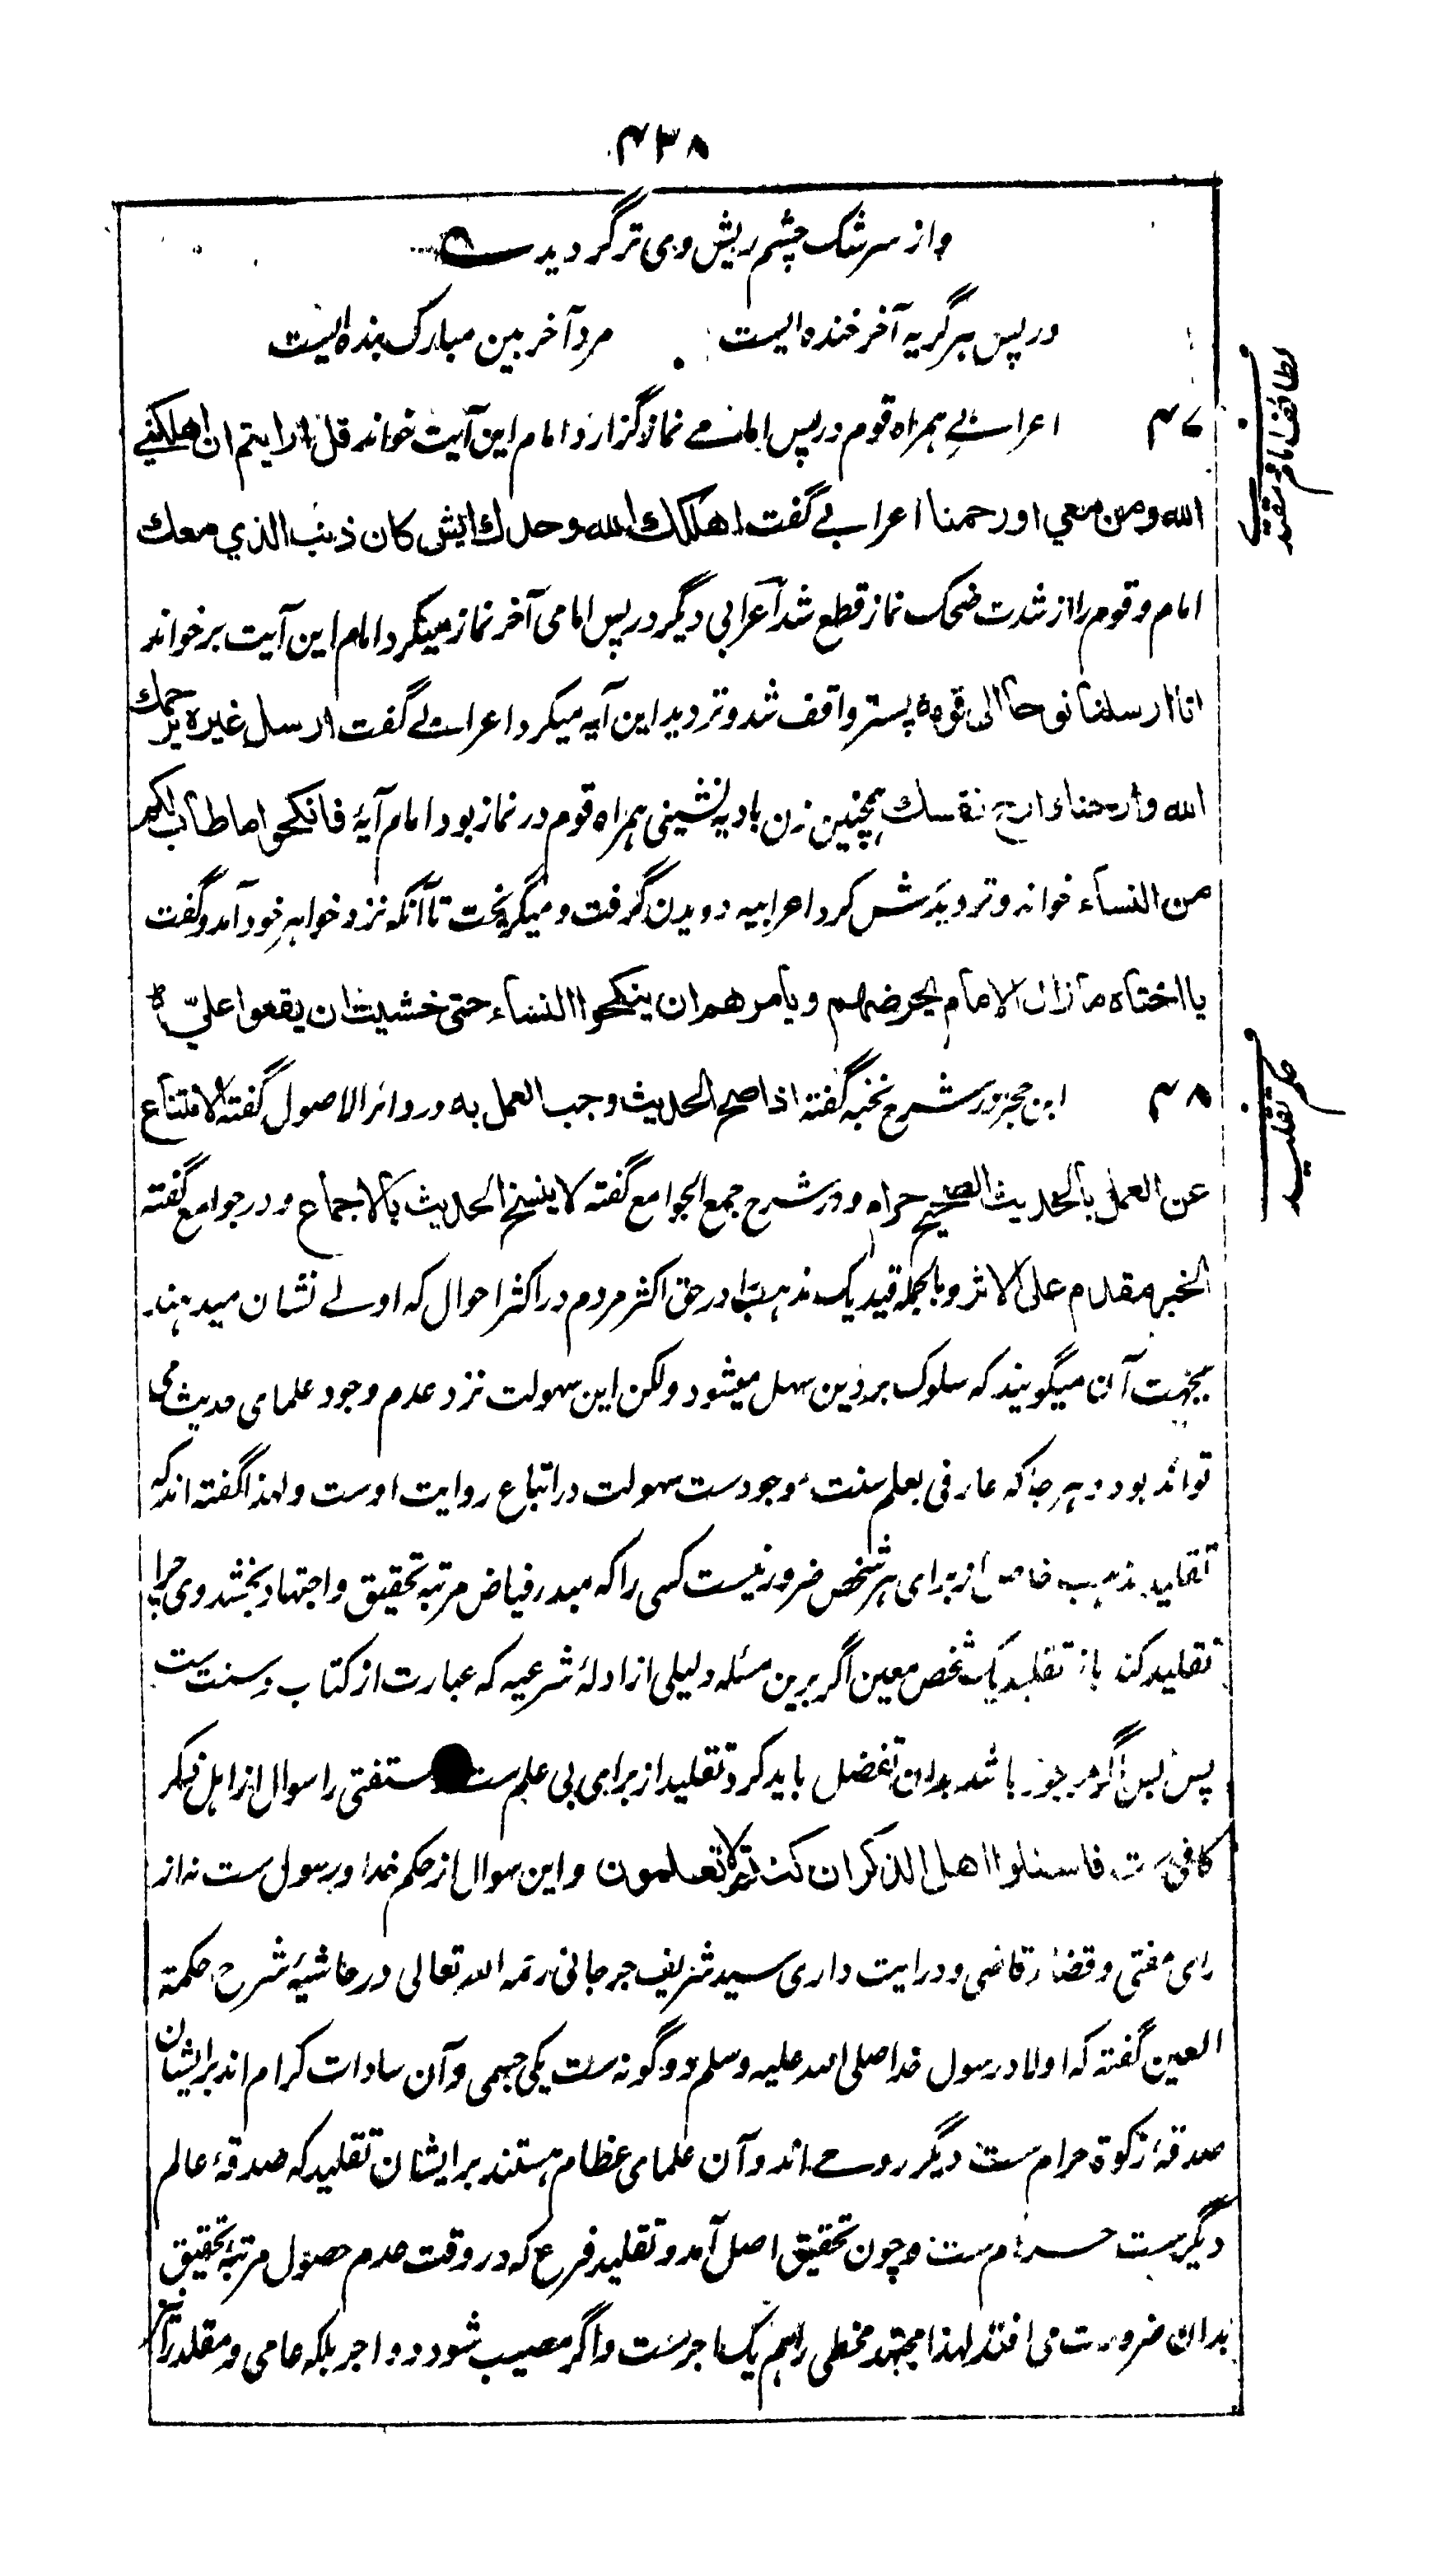 ۴۳۸
واز سرشک چشم ریش وی تر گردید
در پس هر گریه آخر خنده ایست مرد آخر بین مبارک بنده ایست
۴۷ اعرابی همراه قوم در پس امامی نماز گزارد امام این آیت خواند قل ارایتم ان اهلکنی
الله ومن معی اورحمنا اعرابی گفت اهلکك الله وحدك ایش کان ذنب الذي معك
امام و قوم را از شدت ضحک نماز قطع شد اعرابی دیگر در پس امامی آخر نماز میکرد امام این آیت برخواند
انا ارسلنا نوحا الی قومه پستر واقف شد و تردید این آیه میکرد اعرابی گفت ارسل غیره یرحمك
الله وارحنا وارح نفسك همچنین زن بادیه نشینی همراه قوم در نماز بود امام آیهٔ فانکحوا ما طاب لکم
من النساء خواند و تردیدش کرد اعرابیه دویدن گرفت و میگریخت تا آنکه نزد خواهر خود آمد و گفت
یا اختاه ما زال الامام یحرضهم ویامرهم ان ینکحوا النساء حتی خشیت ان یقعوا علیّ
۴۸ ابن حجر در شرح نخبه گفته اذا صح الحدیث وجب العمل به و در دائر الاصول گفته الامتناع
عن العمل بالحدیث الصحیح حرام و در شرح جمع الجوامع گفته لا ینسخ الحدیث بالاجماع و در جوامع گفته
الخبر مقدم علی الاثر و بالجمله قید یک مذهب را در حق اکثر مردم در اکثر احوال که اولی نشان میدهند
بجهت آن میگویند که سلوک بر دین سهل میشود ولکن این سهولت نزد عدم وجود علمای حدیث می
تواند بود و هر جا که عارفی بعلم سنت موجودست سهولت در اتباع روایت اوست و لهذا گفته اند که
تقلید مذهب خاص از برای هر شخص ضرور نیست کسی را که مبدء فیاض مرتبه تحقیق و اجتهاد بخشد وی چرا
تقلید کند باز تقلید یک شخص معین اگر برین مسئله دلیلی از ادلهٔ شرعیه که عبارت از کتاب و سنت ست
پس بس اگر موجود باشد بدان تفضل باید کرد تقلید از برای بی علم ست مستفتی را سوال از اهل ذکر
کافی ست فاسئلوا اهل الذکر ان کنتم لا تعلمون و این سوال از حکم خدا و رسول ست نه از
رای مفتی و قضاء قاضی و درایت داری سید شریف جرجانی رحمه الله تعالی در حاشیهٔ شرح حکمة
العین گفته که اولاد رسول خدا صلی الله علیه وسلم دو گونه ست یکی جسمی و آن سادات کرام اند برایشان
صدقهٔ زکوة حرام ست دیگر روحی اند و آن علمای عظام هستند برایشان تقلید که صدقهٔ عالم
دیگرست حرام ست و چون تحقیق اصل آمد و تقلید فرع که در وقت عدم حصول مرتبهٔ تحقیق
بدان ضرورت می افتد لهذا مجتهد مخطی را هم یک اجرست و اگر مصیب شود دو اجر بلکه عامی و مقلد را
لطائف امام و مقتدی
حکم تقلید